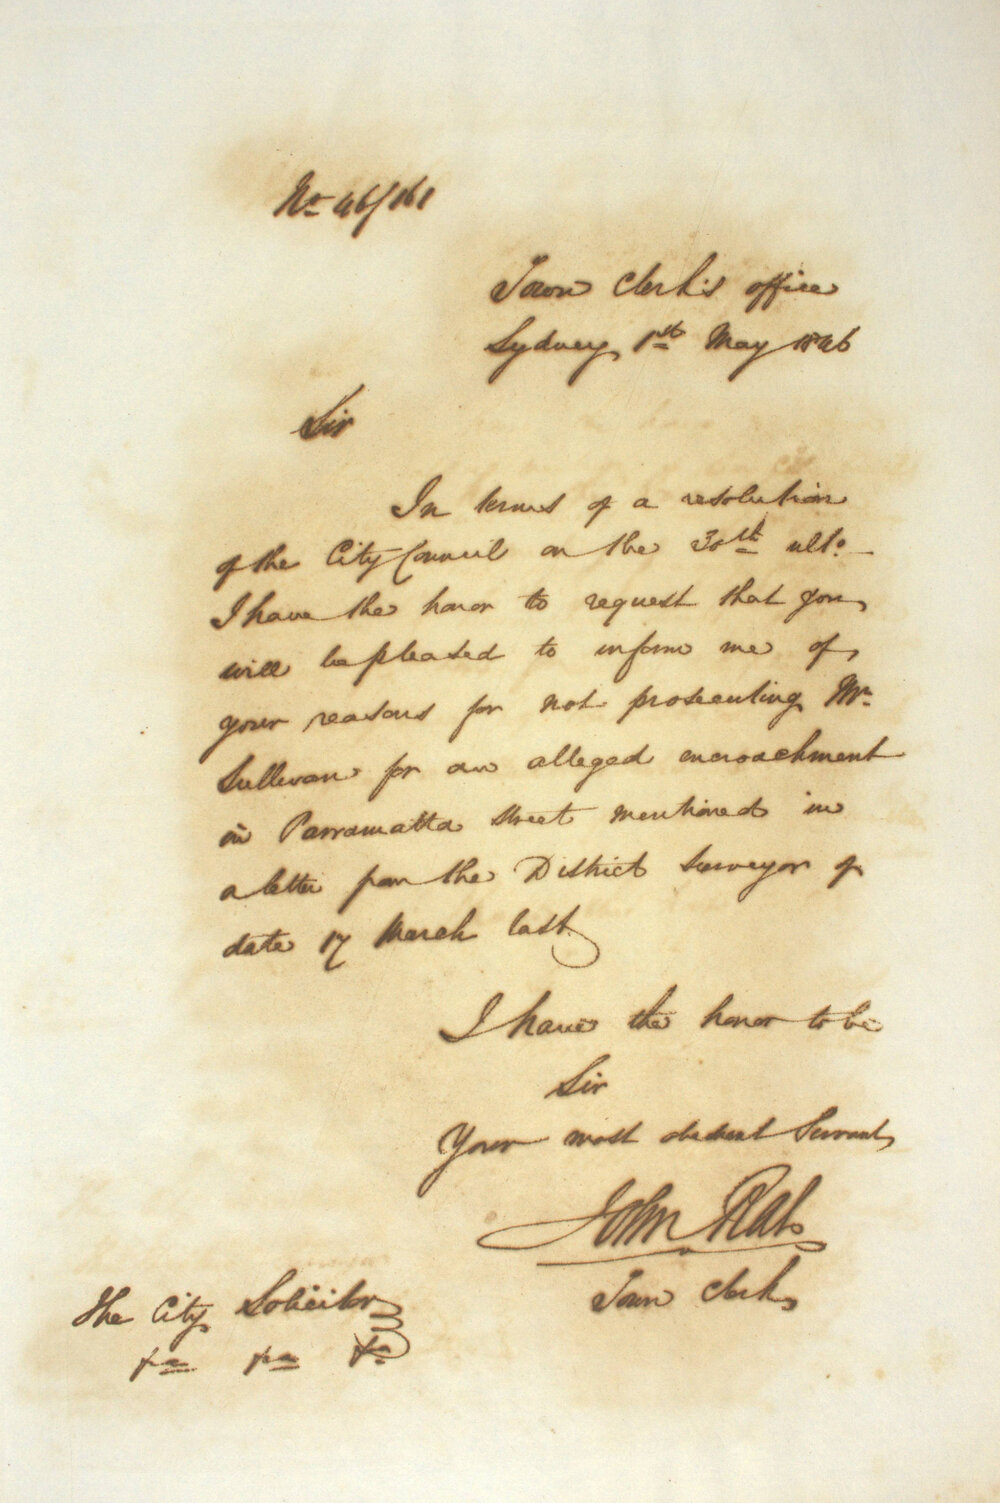 No 46/161
Town Clerk's office
Sydney 1st May 1846
Sir
In terms of a resolution
of the City Council on the 30th ulto.
I have the honor to request that you
will be pleased to inform me of
your reasons for not prosecuting Mr.
Sullivan for an alleged encroachment
in Parramatta Street mentioned in
a letter from the District Surveyor of
date 17 March last.
I have the honor to be
Sir
Your most obedient Servant
John Rae
Town Clerk
The City Solicitor
&c &c &c